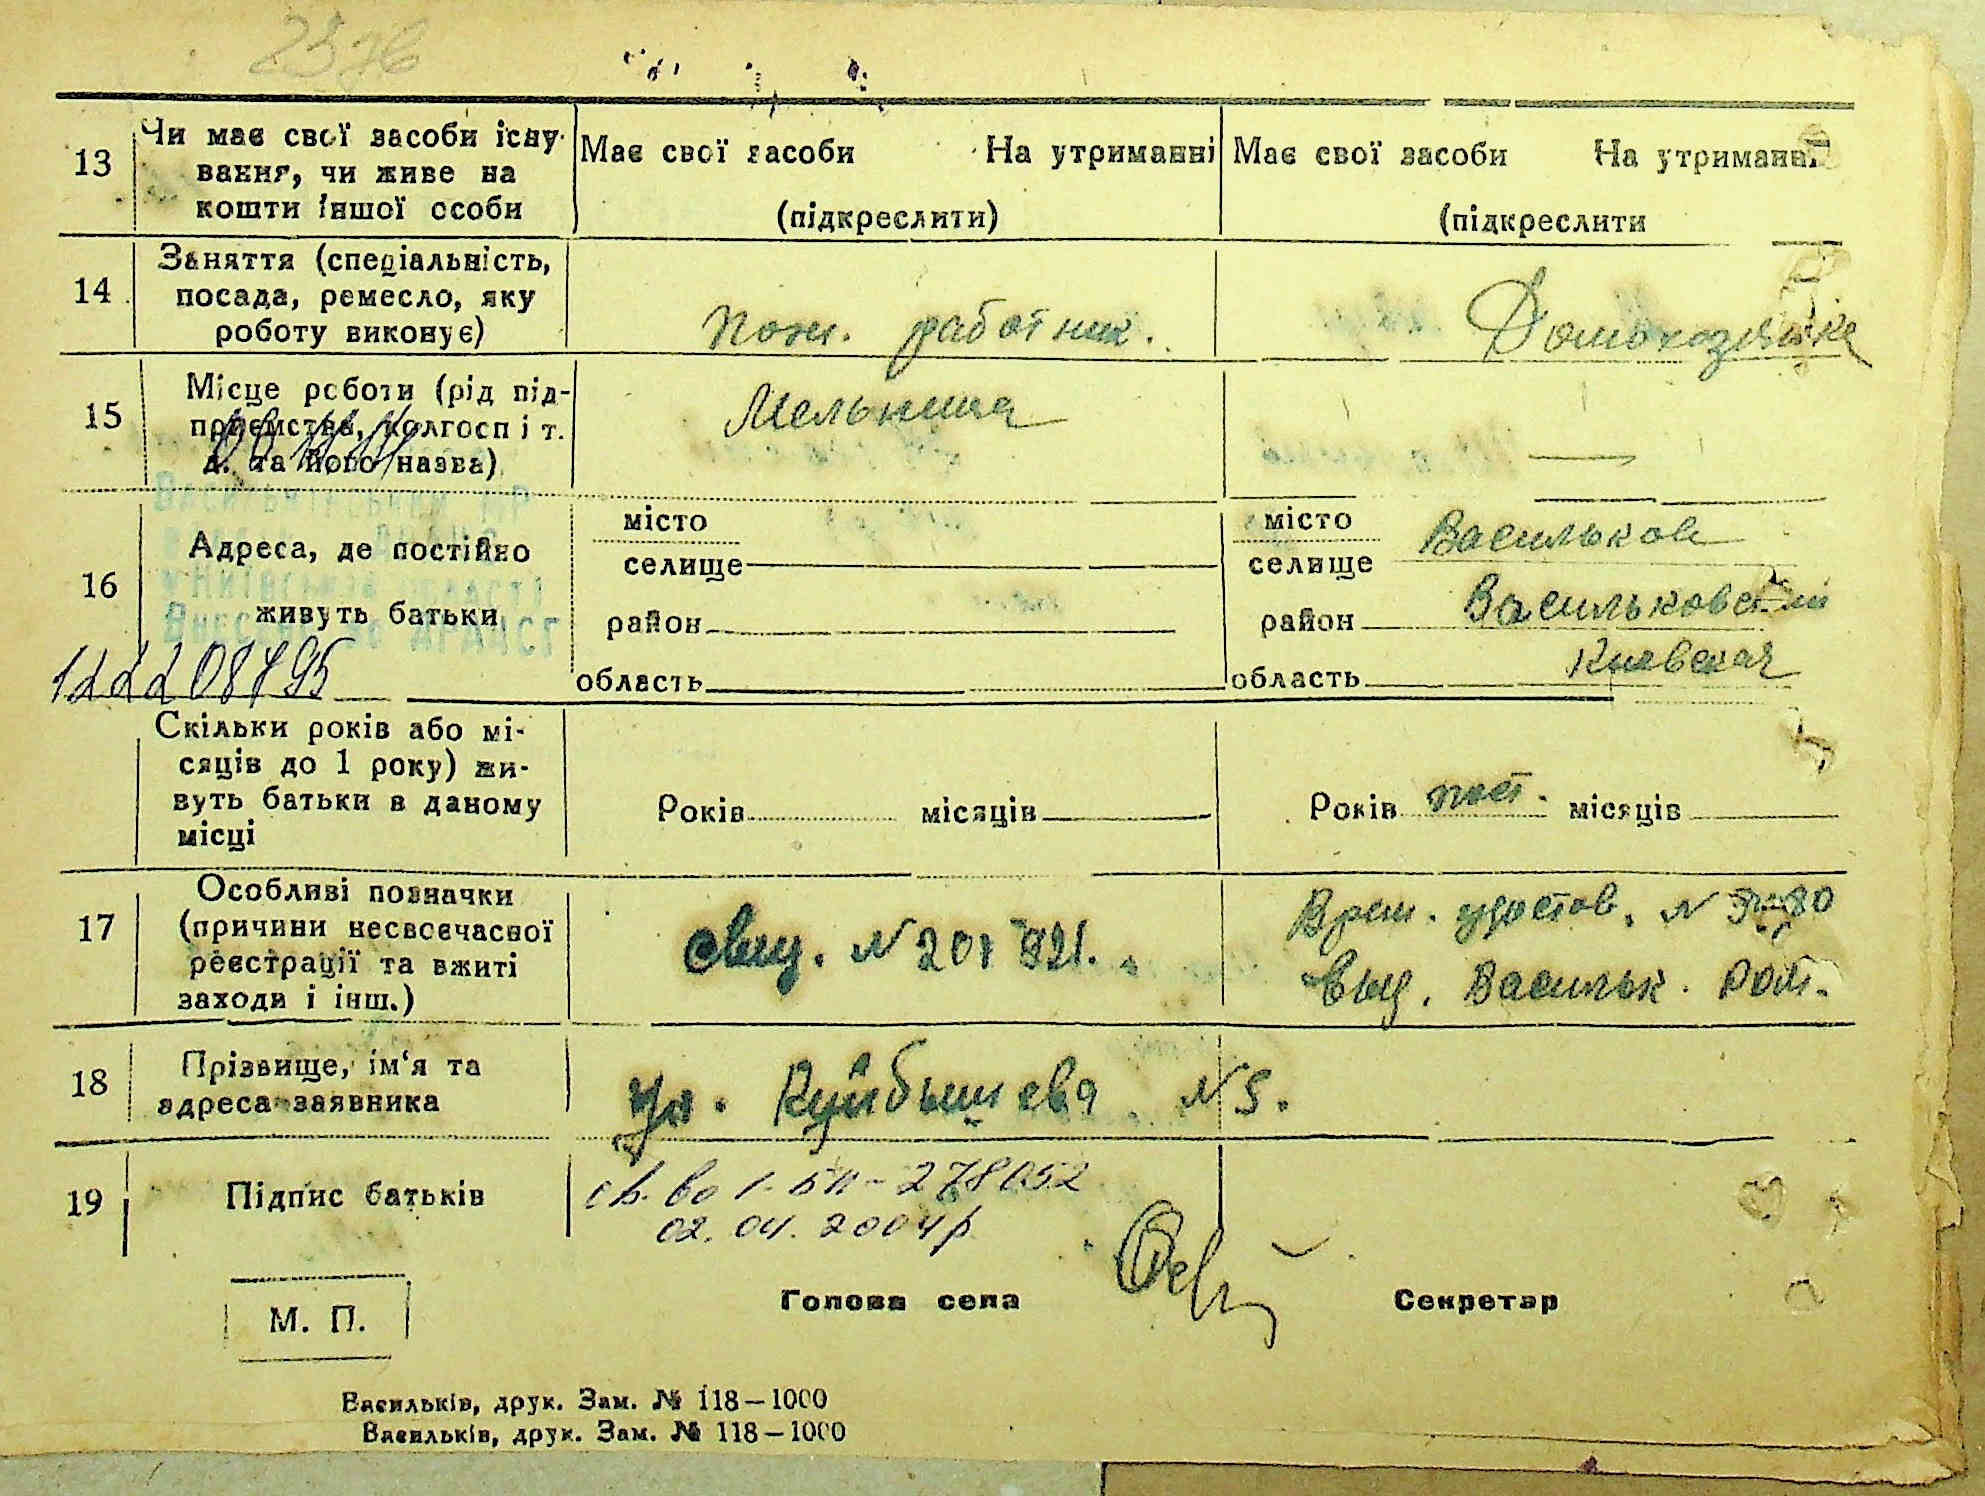 2376
13 Чи має свої засоби існу-
вання, чи живе на
кошти іншої особи
Має свої засоби На утриманні
(підкреслити)
Має свої засоби На утриманні
(підкреслити
14 Заняття (спеціальність,
посада, ремесло, яку
роботу виконує)
пож. работник.
Домохозяйка
15 Місце роботи (рід під-
приємства, колгосп і т.
д. та його назва)
Мельница
—
16 Адреса, де постійно
живуть батьки
місто
селище
район
область
місто Васильков
селище
район Васильковский
область Киевская
122208795
Скільки років або мі-
сяців до 1 року) жи-
вуть батьки в даному
місці
Років місяців
Років пост. місяців
17 Особливі позначки
(причини несвоєчасної
реєстрації та вжиті
заходи і інш.)
свид. N
Врем. удостов. N
Выд. Васильк. РОМ.
18 Прізвище, ім'я та
адреса заявника
ул. Куйбышева N 5.
19 Підпис батьків
св. во 1-БК-278052
02.04.2004р
М. П.
Голова села Секретар
Васильків, друк. Зам. № 118—1000
Васильків, друк. Зам. № 118—1000